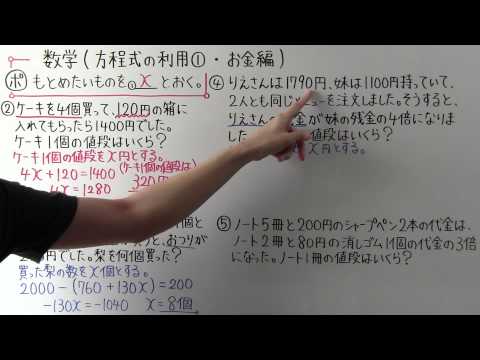 数学(方程式の利用①・お金編)
ポ もとめたいものを①xとおく。
②ケーキを4個買って、120円の箱に
入れてもらったら1400円でした。
ケーキ1個の値段はいくら?
ケーキ1個の値段をx円とする。
4x+120=1400 (ケーキ1個の
4x=1280
320円
個と
おつりが
買った梨の数をx個とする。
2000-(760+130x)=200
-130x=-1040 x=8個
④りえさんは1790円、妹は1100円持っていて、
2人とも同じ ニューを注文しました。そうすると、
りえさん 金が妹の残金の4倍になりま
した。 値段はいくら?
x円とする。
⑤ノート5冊と200円のシャープペン2本の代金は、
ノート2冊と80円の消しゴム1個の代金の3倍
になった。ノート1冊の値段はいくら?